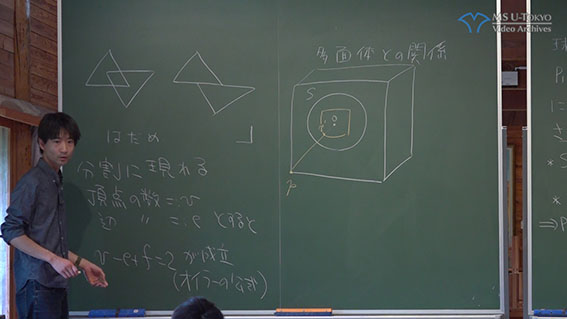 MS U-TOKYO
Video Archives
多面体との関係
S
P
はため
分割に現れる
頂点の数=:v
辺 〃 =:e とすると
v-e+f=2が成立
(オイラーの公式)